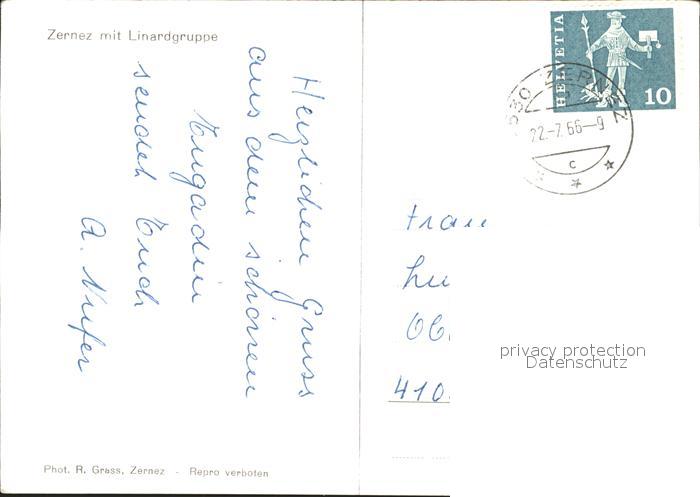 Zernez mit Linardgruppe
Herzlichen Gruss
aus dem schönen
Engadin
sendet Euch
A. Nufer
HELVETIA
10
7530 ZERNEZ
22.-7.66-9
c
Frau
privacy protection
Datenschutz
410
Phot. R. Grass, Zernez - Repro verboten